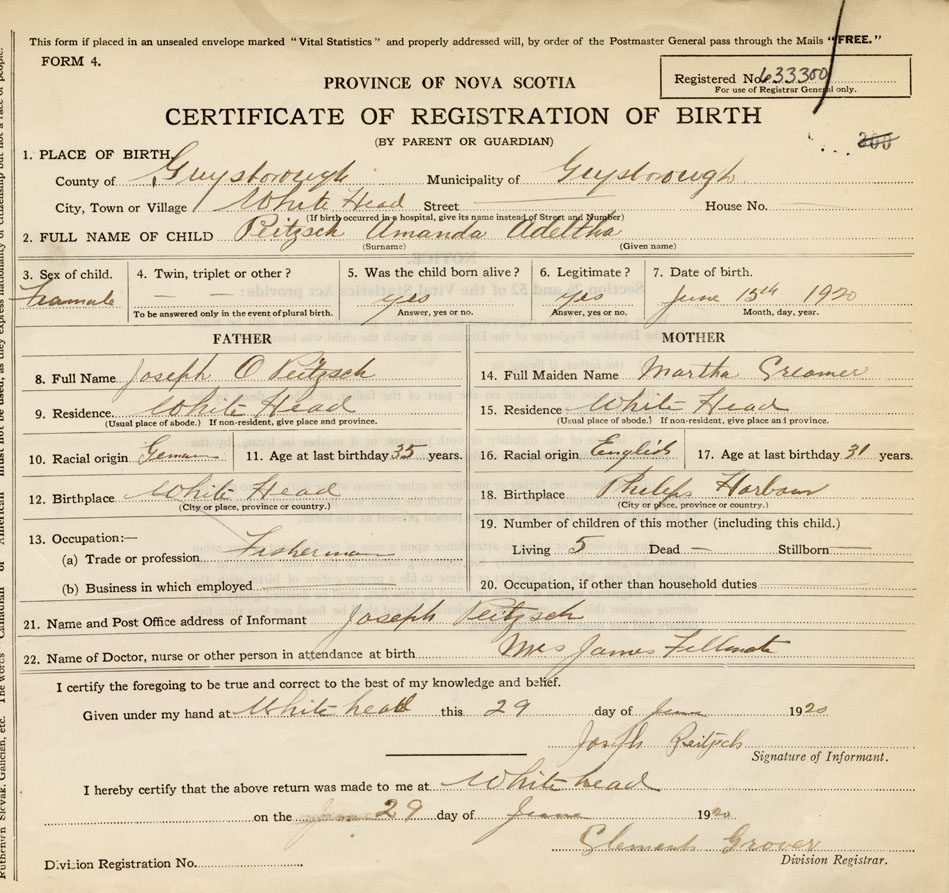 This form if placed in an unsealed envelope marked "Vital Statistics" and properly addressed will, by order of the Postmaster General pass through the Mails "FREE."
FORM 4.
Registered No. 633300
For use of Registrar General only.
PROVINCE OF NOVA SCOTIA
CERTIFICATE OF REGISTRATION OF BIRTH
(BY PARENT OR GUARDIAN)
200
1. PLACE OF BIRTH
County of Guysborough Municipality of Guysborough
City, Town or Village White Head Street House No.
(If birth occurred in a hospital, give its name instead of Street and Number)
2. FULL NAME OF CHILD Peitzsch Amanda Adeltha
(Surname) (Given name)
3. Sex of child. 4. Twin, triplet or other? 5. Was the child born alive? 6. Legitimate? 7. Date of birth.
Feamale — — yes yes June 15th 1920
To be answered only in the event of plural birth. Answer, yes or no. Answer, yes or no. Month, day, year.
FATHER
8. Full Name Joseph O Peitzsch
9. Residence White Head
(Usual place of abode.) If non-resident, give place and province.
10. Racial origin German 11. Age at last birthday 35 years.
12. Birthplace White Head
(City or place, province or country.)
13. Occupation:—
(a) Trade or profession Fisherman
(b) Business in which employed
MOTHER
14. Full Maiden Name Martha Greamer
15. Residence White Head
(Usual place of abode.) If non-resident, give place an province.
16. Racial origin English 17. Age at last birthday 31 years.
18. Birthplace Philips Harbour
(City or place, province or country.)
19. Number of children of this mother (including this child.)
Living 5 Dead — Stillborn —
20. Occupation, if other than household duties
21. Name and Post Office address of Informant Joseph Peitzsch
22. Name of Doctor, nurse or other person in attendance at birth Mrs James
I certify the foregoing to be true and correct to the best of my knowledge and belief.
Given under my hand at White head this 29 day of June 1920
Joseph Peitzsch
Signature of Informant.
I hereby certify that the above return was made to me at White head
on the 29 day of June 1920
Clement Grover
Division Registration No. Division Registrar.